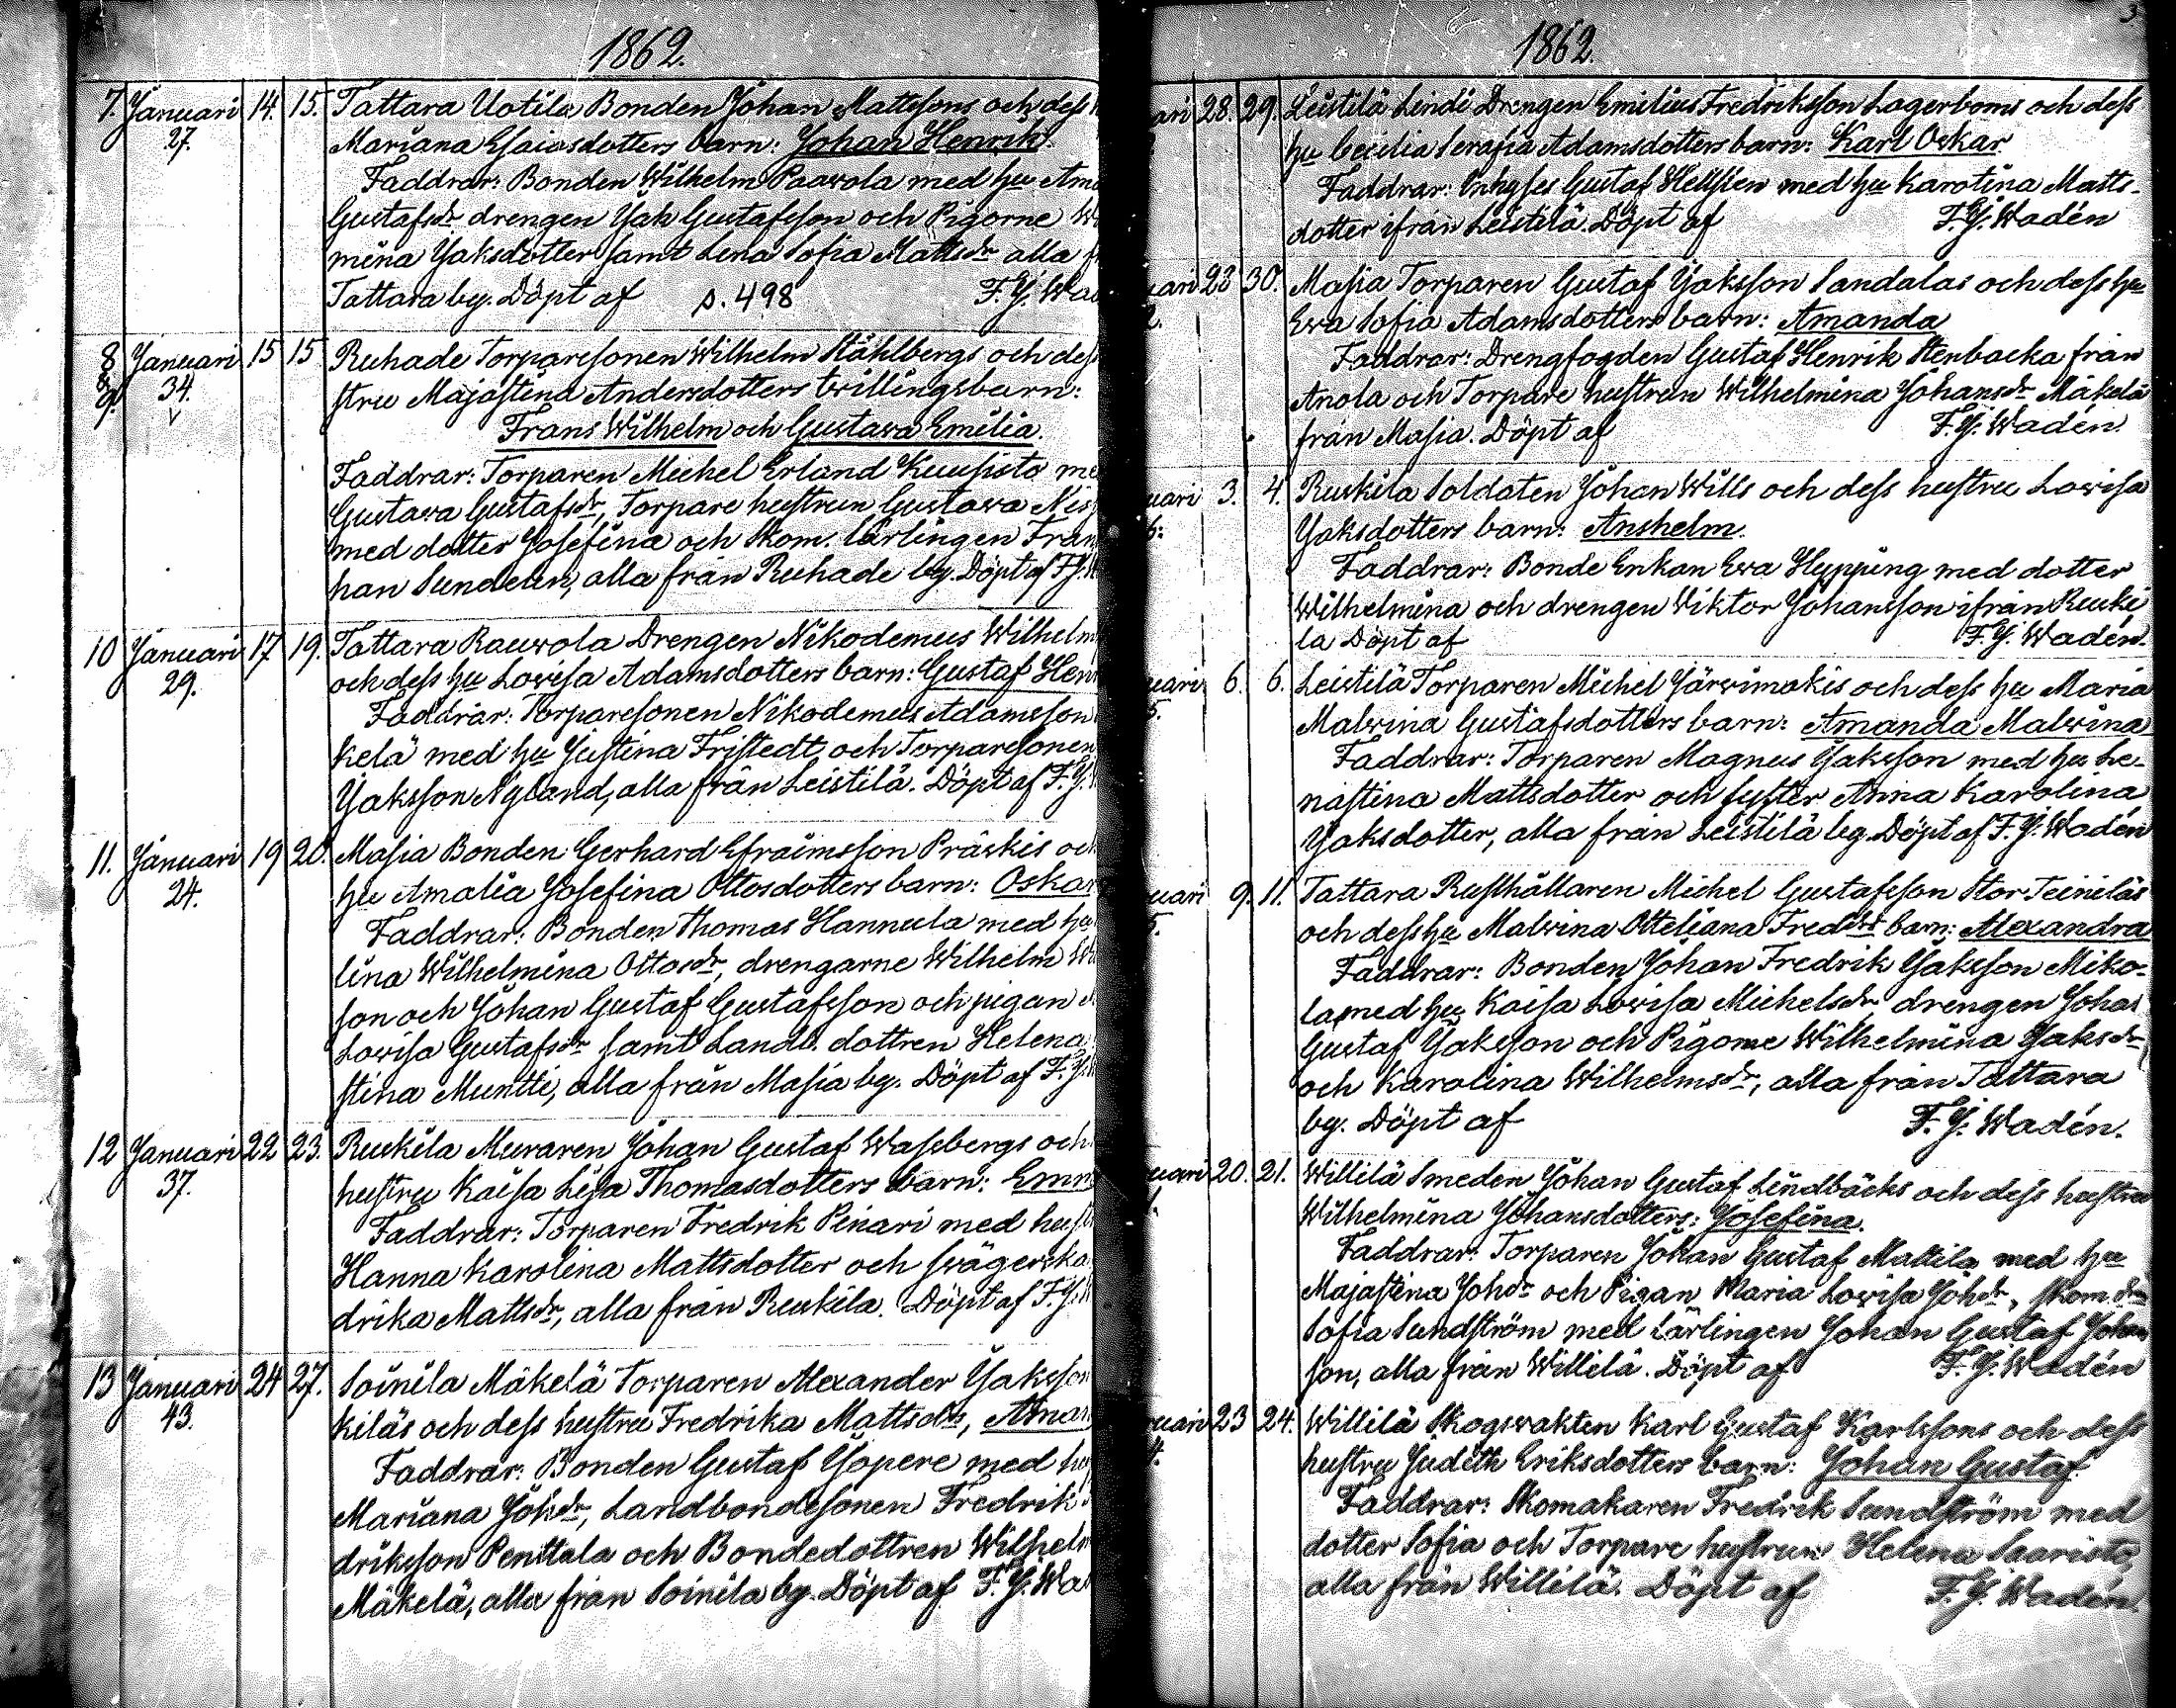 1862.
7. Januari 14. 15. Tattara Uotila Bonden Johan Mattssons och dess
27. Mariana Esaiasdotters barn: Johan Henrik.
Faddrar: Bonden Wilhelm Paawola med hu
Gustafsdr drengen Jak Gustafsson och Pigorne
mina Jaksdotter samt Lena Sofia Mattsdr alla
Tattara by. Döpt af s. 498 F. J. Wa
8 Januari 15 15 Ruhade Torparesonen Wilhelm Ståhlbergs och dess
& 9. 34. stru Majastina Andersdotters tvillingsbarn:
Frans Wilhelm och Gustava Emilia.
Faddrar: Torparen Michel Erland Kuusisto me
Gustava Gustafsdr, Torpare hustrun Gustava
med dotter Josefina och Skom. lärlingen Fran
han Sundelin, alla från Ruhade by. Döpt af F. J.
10 Januari 17 19. Tattara Rauvola Drengen Nikodemus Wilhelm
29. och dess hu Lovisa Adamsdotters barn: Gustaf Hen
Faddrar: Torparesonen Nikodemus Adamsson
kelä med hu Justina Fristedt och Torparesonen
Jaksson Nyland, alla från Leistilä. Döpt af F. J.
11. Januari 19 20. Masia Bonden Gerhard Efraimsson Präskis och
24. hu Amalia Josefina Ottosdotters barn: Oskar
Faddrar: Bonden Thomas Hannula med hu
lina Wilhelmina Ottosdr, drengarne Wilhelm
son och Johan Gustaf Gustafsson och pigan
Lovisa Gustafsdr samt Landb. dottren Helena
stina Muntti, alla från Masia by. Döpt af F. J.
12 Januari 22 23. Ruskila Muraren Johan Gustaf Wassbergs och
37. hustru Kaisa Lisa Thomasdotters barn:
Faddrar: Torparen Fredrik Pinari med hust
Hanna Karolina Mattsdotter och svägerska
drika Mattsdr, alla från Ruskila. Döpt af F. J.
13 Januari 24 27. Soinila Mäkelä Torparen Alexander Jaksson
43. kiläs och dess hustru Fredrika Mattsdrs, Aman
Faddrar: Bonden Gustaf Yöpere med hu
Mariana Johdr, Landbondesonen Fredrik
driksson Penttala och Bondedottren Wilhelm
Mäkelä, alla från Soinila by. Döpt af F. J. Wa
3
1862.
ari 28. 29. Leistilä Lindi Drengen Emilius Fredriksson Lagerboms och dess
hu Cecilia Serafia Adamsdotters barn: Karl Oskar
Faddrar: Gustaf Hellsten med hu Karolina Matts-
dotter ifrån Leistilä. Döpt af F. J. Wadén
uari 28 30. Masia Torparen Gustaf Jaksson Sandalas och dess hu
2. Eva Sofia Adamsdotters barn: Amanda
Faddrar: Drengfogden Gustaf Henrik Stenbacka från
Anola och Torpare hustrun Wilhelmina Johansdr Mäkelä
från Masia. Döpt af F. J. Wadén.
uari 3. 4. Ruskila Soldaten Johan Wills och dess hustru Lovisa
Jaksdotters barn: Anshelm.
Faddrar: Bonde Enkan Eva Hypping med dotter
Wilhelmina och drengen Viktor Johansson ifrån Ruski
la Döpt af F. J. Wadén.
uari 6. 6. Leistilä Torparen Michel Järvimäkis och dess hu Maria
5. Malvina Gustafsdotters barn: Amanda Malvina
Faddrar: Torparen Magnus Jaksson med hu Le-
nastina Mattsdotter och syster Anna Karolina
Jaksdotter, alla från Leistilä by. Döpt af F. J. Wadén
uari 9. 11. Tattara Rusthållaren Michel Gustafsson Stor-Teiniläs
5. och dess hu Malvina Otteliana Freddrs barn: Alexandra
Faddrar: Bonden Johan Fredrik Jaksson Miko-
la med hu Kaisa Lovisa Michelsdr, drengen Johan
Gustaf Jaksson och Pigorne Wilhelmina Jaksdr
och Karolina Wilhelmsdr, alla från Tattara
by. Döpt af F. J. Wadén.
uari 20. 21. Willilä Smeden Johan Gustaf Lindbäcks och dess hustru
Wilhelmina Johansdotters: Josefina.
Faddrar: Torparen Johan Gustaf Mattila med hu
Majastina Johdr och Pigan Maria Lovisa Johdr, Skom.
Sofia Sundström med Lärlingen Johan Gustaf Johan
son, alla från Willilä. Döpt af F. J. Wadén
ruari 23 24. Willilä Skogsvakten Karl Gustaf Karlssons och dess
4. hustru Judith Eriksdotters barn: Johan Gustaf.
Faddrar: Skomakaren Fredrik Sundström med
dotter Sofia och Torpare hustrun Helena Saaristo,
alla från Willilä. Döpt af F. J. Wadén.